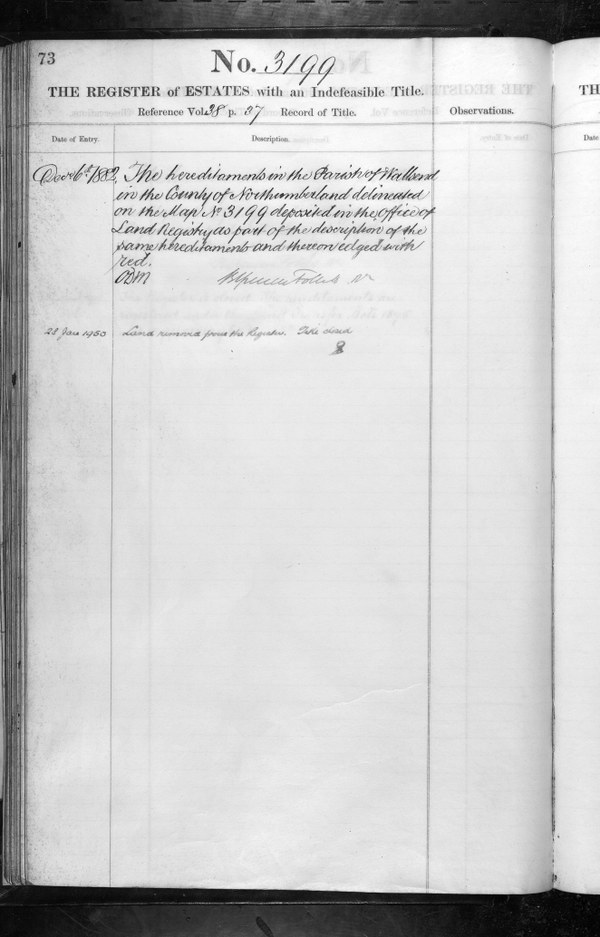 73
No. 3199
THE REGISTER of ESTATES with an Indefeasible Title.
Reference Vol. 38 p. 37 Record of Title.
Observations.
Date of Entry.
Description.
Decr 6th 1882. The hereditaments in the Parish of Wallsend
in the County of Northumberland delineated
on the Map No 3199 deposited in the Office of
Land Registry as part of the description of the
same hereditaments and thereon edged with
red.
28 Jan 1950 Land removed from the Register. Title closed
TH
Date